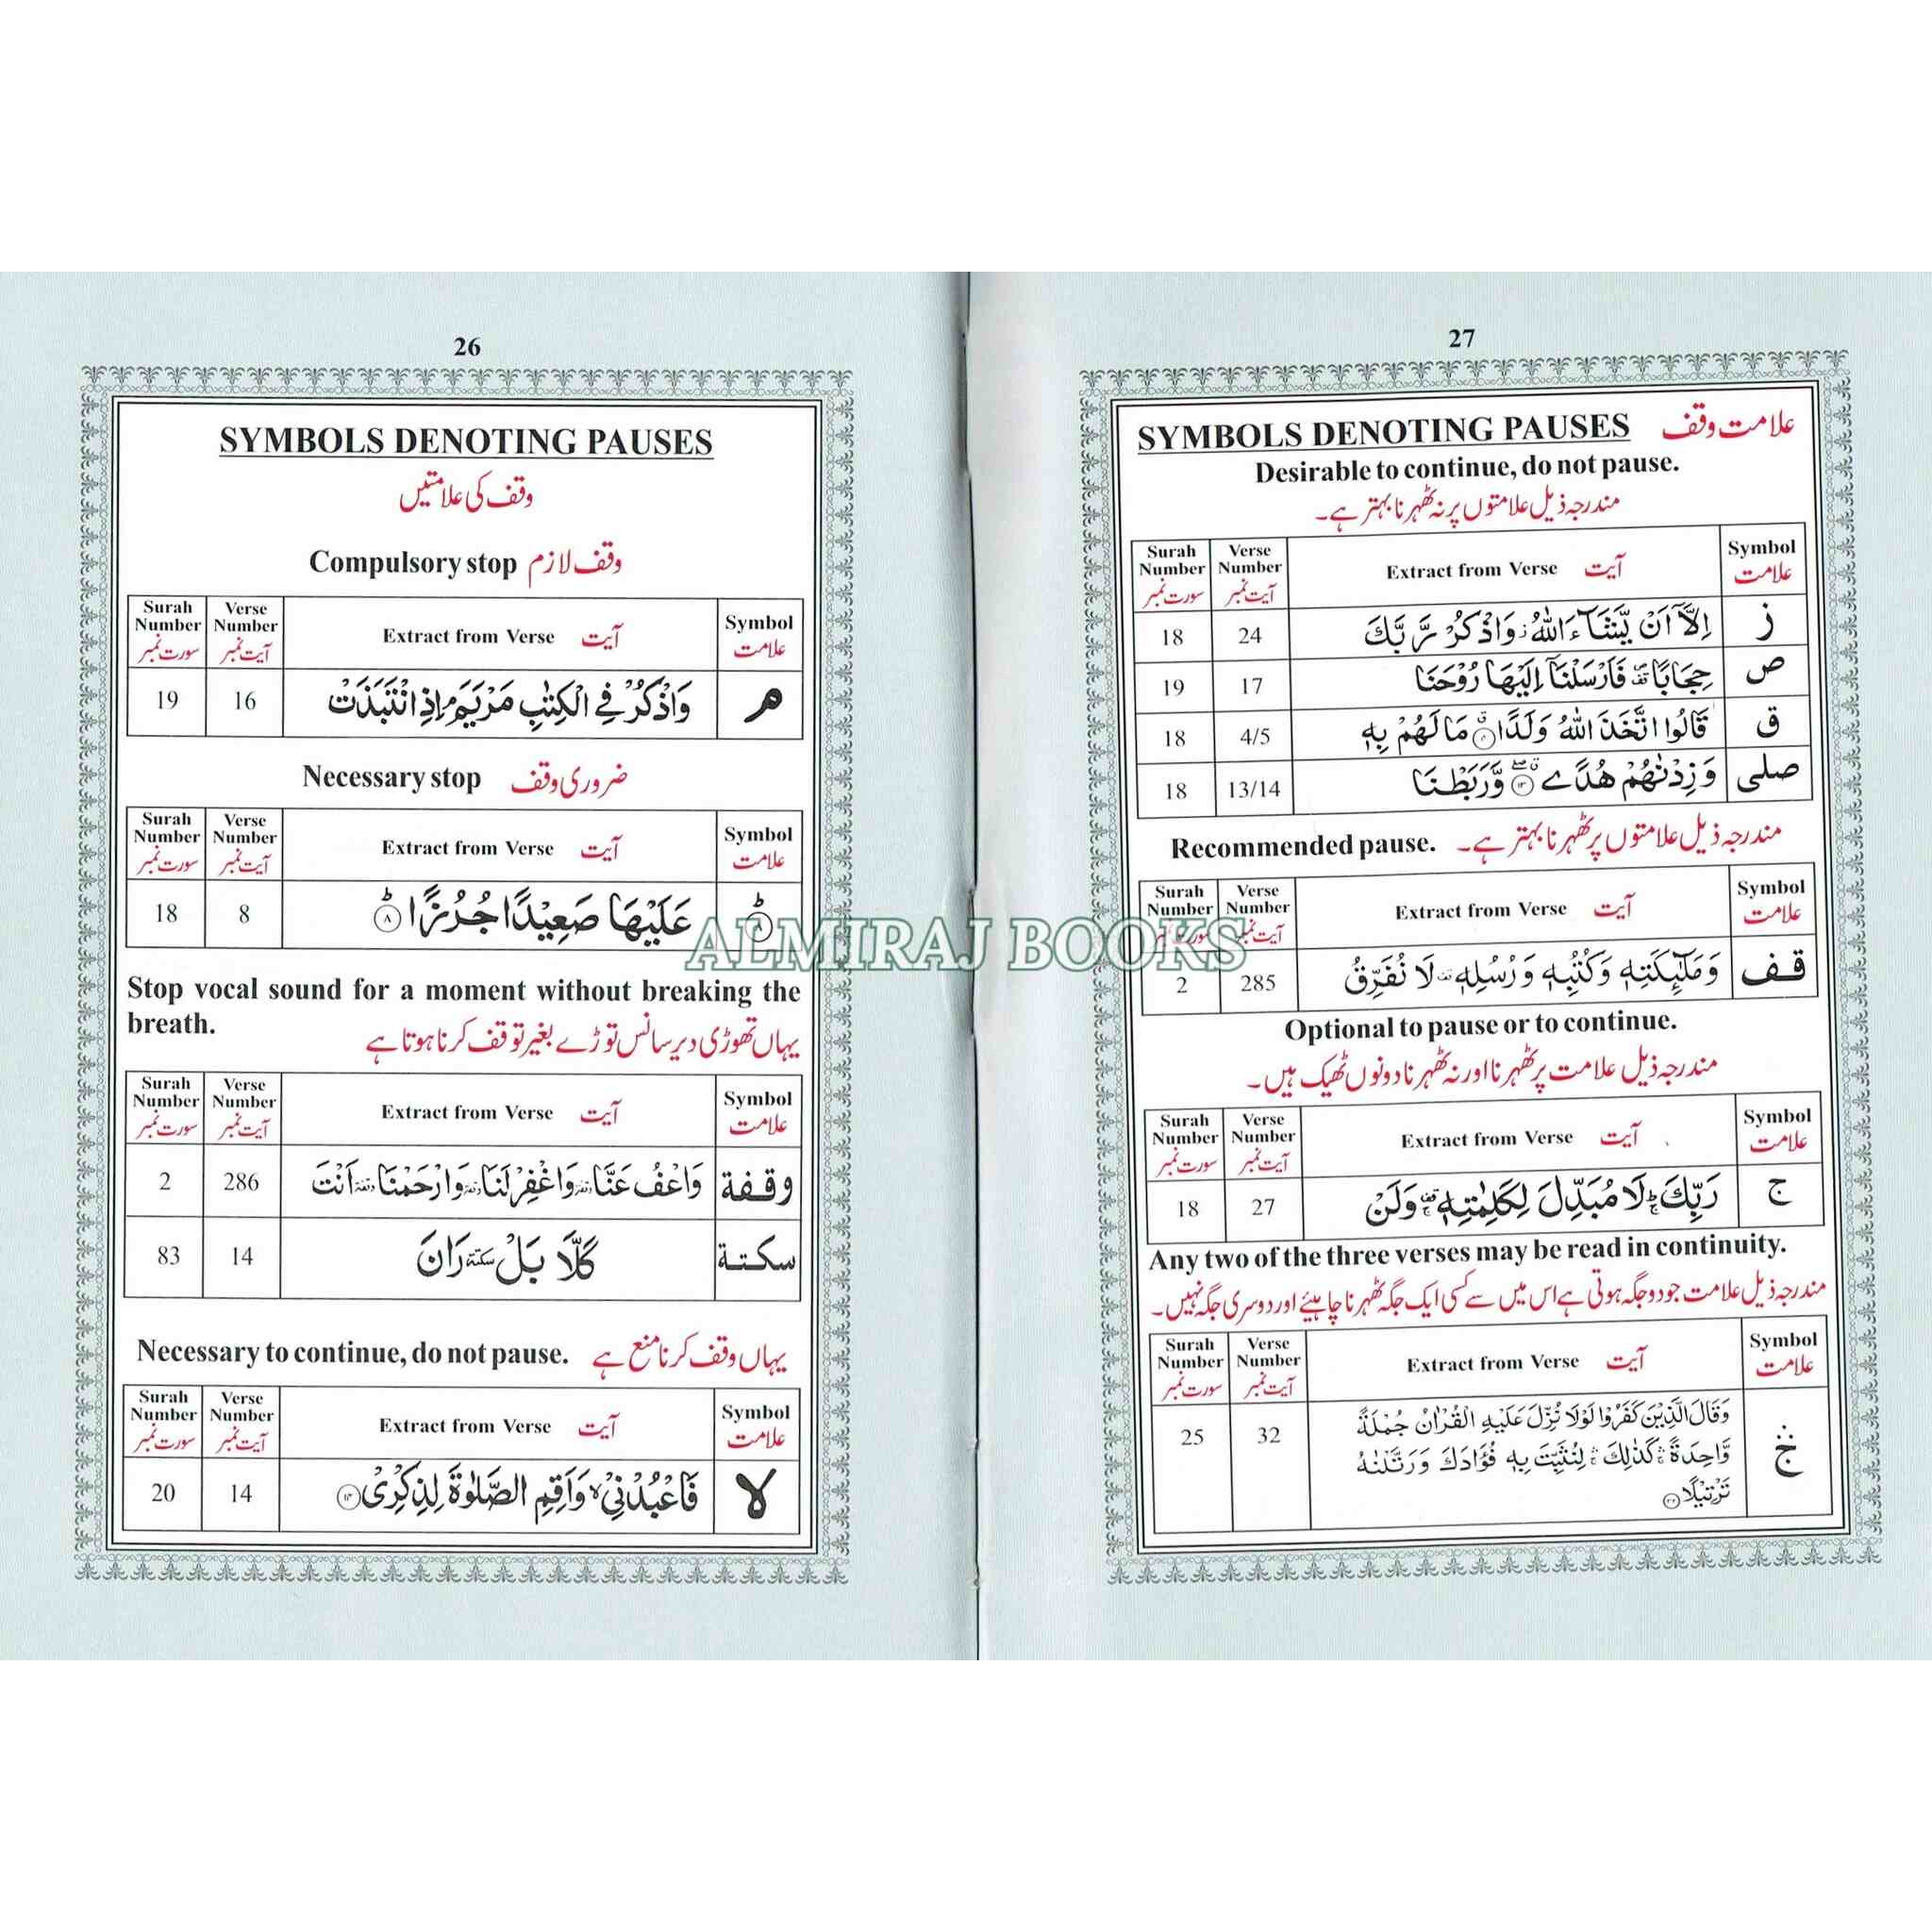 26
SYMBOLS DENOTING PAUSES
وقف کی علامتیں
Compulsory stop وقف لازم
Surah Number سورت نمبر Verse Number آیت نمبر Extract from Verse آیت Symbol علامت
19 16 وَاذْكُرْ فِي الْكِتٰبِ مَرْيَمَ ۘ اِذِ انْتَبَذَتْ م
Necessary stop ضروری وقف
Surah Number سورت نمبر Verse Number آیت نمبر Extract from Verse آیت Symbol علامت
18 8 عَلَيْهَا صَعِيْدًا جُرُزًا ۸ ط ط
Stop vocal sound for a moment without breaking the
breath.
یہاں تھوڑی دیر سانس توڑے بغیر توقف کرنا ہوتا ہے
Surah Number سورت نمبر Verse Number آیت نمبر Extract from Verse آیت Symbol علامت
2 286 وَاعْفُ عَنَّا وقفة وَاغْفِرْ لَنَا وقفة وَارْحَمْنَا وقفة اَنْتَ وقفة
83 14 كَلَّا بَلْ سكتة رَانَ سكتة
Necessary to continue, do not pause. یہاں وقف کرنا منع ہے
Surah Number سورت نمبر Verse Number آیت نمبر Extract from Verse آیت Symbol علامت
20 14 فَاعْبُدْنِيْ ۙ وَاَقِمِ الصَّلٰوةَ لِذِكْرِيْ ۱۴ لا
27
SYMBOLS DENOTING PAUSES علامت وقف
Desirable to continue, do not pause.
مندرجہ ذیل علامتوں پر نہ ٹھہرنا بہتر ہے۔
Surah Number سورت نمبر Verse Number آیت نمبر Extract from Verse آیت Symbol علامت
18 24 اِلَّآ اَنْ يَّشَآءَ اللّٰهُ ز وَاذْكُرْ رَّبَّكَ ز
19 17 حِجَابًا قف فَاَرْسَلْنَآ اِلَيْهَا رُوْحَنَا ص
18 4/5 قَالُوا اتَّخَذَ اللّٰهُ وَلَدًا ق مَا لَهُمْ بِهٖ ق
18 13/14 وَزِدْنٰهُمْ هُدًى ۱۳ وَّرَبَطْنَا صلی
Recommended pause. مندرجہ ذیل علامتوں پر ٹھہرنا بہتر ہے۔
Surah Number سورت نمبر Verse Number آیت نمبر Extract from Verse آیت Symbol علامت
2 285 وَمَلٰٓئِكَتِهٖ وَكُتُبِهٖ وَرُسُلِهٖ قف لَا نُفَرِّقُ قف
Optional to pause or to continue.
مندرجہ ذیل علامت پر ٹھہرنا اور نہ ٹھہرنا دونوں ٹھیک ہیں۔
Surah Number سورت نمبر Verse Number آیت نمبر Extract from Verse آیت Symbol علامت
18 27 رَبِّكَ ط لَا مُبَدِّلَ لِكَلِمٰتِهٖ وَلَنْ ج
Any two of the three verses may be read in continuity.
مندرجہ ذیل علامت جو دو جگہ ہوتی ہے اس میں سے کسی ایک جگہ ٹھہرنا چاہیئے اور دوسری جگہ نہیں۔
Surah Number سورت نمبر Verse Number آیت نمبر Extract from Verse آیت Symbol علامت
25 32 وَقَالَ الَّذِيْنَ كَفَرُوْا لَوْلَا نُزِّلَ عَلَيْهِ الْقُرْاٰنُ جُمْلَةً
وَّاحِدَةً ۛ كَذٰلِكَ ۛ لِنُثَبِّتَ بِهٖ فُؤَادَكَ وَرَتَّلْنٰهُ
تَرْتِيْلًا ۳۲
ALMIRAJ BOOKS